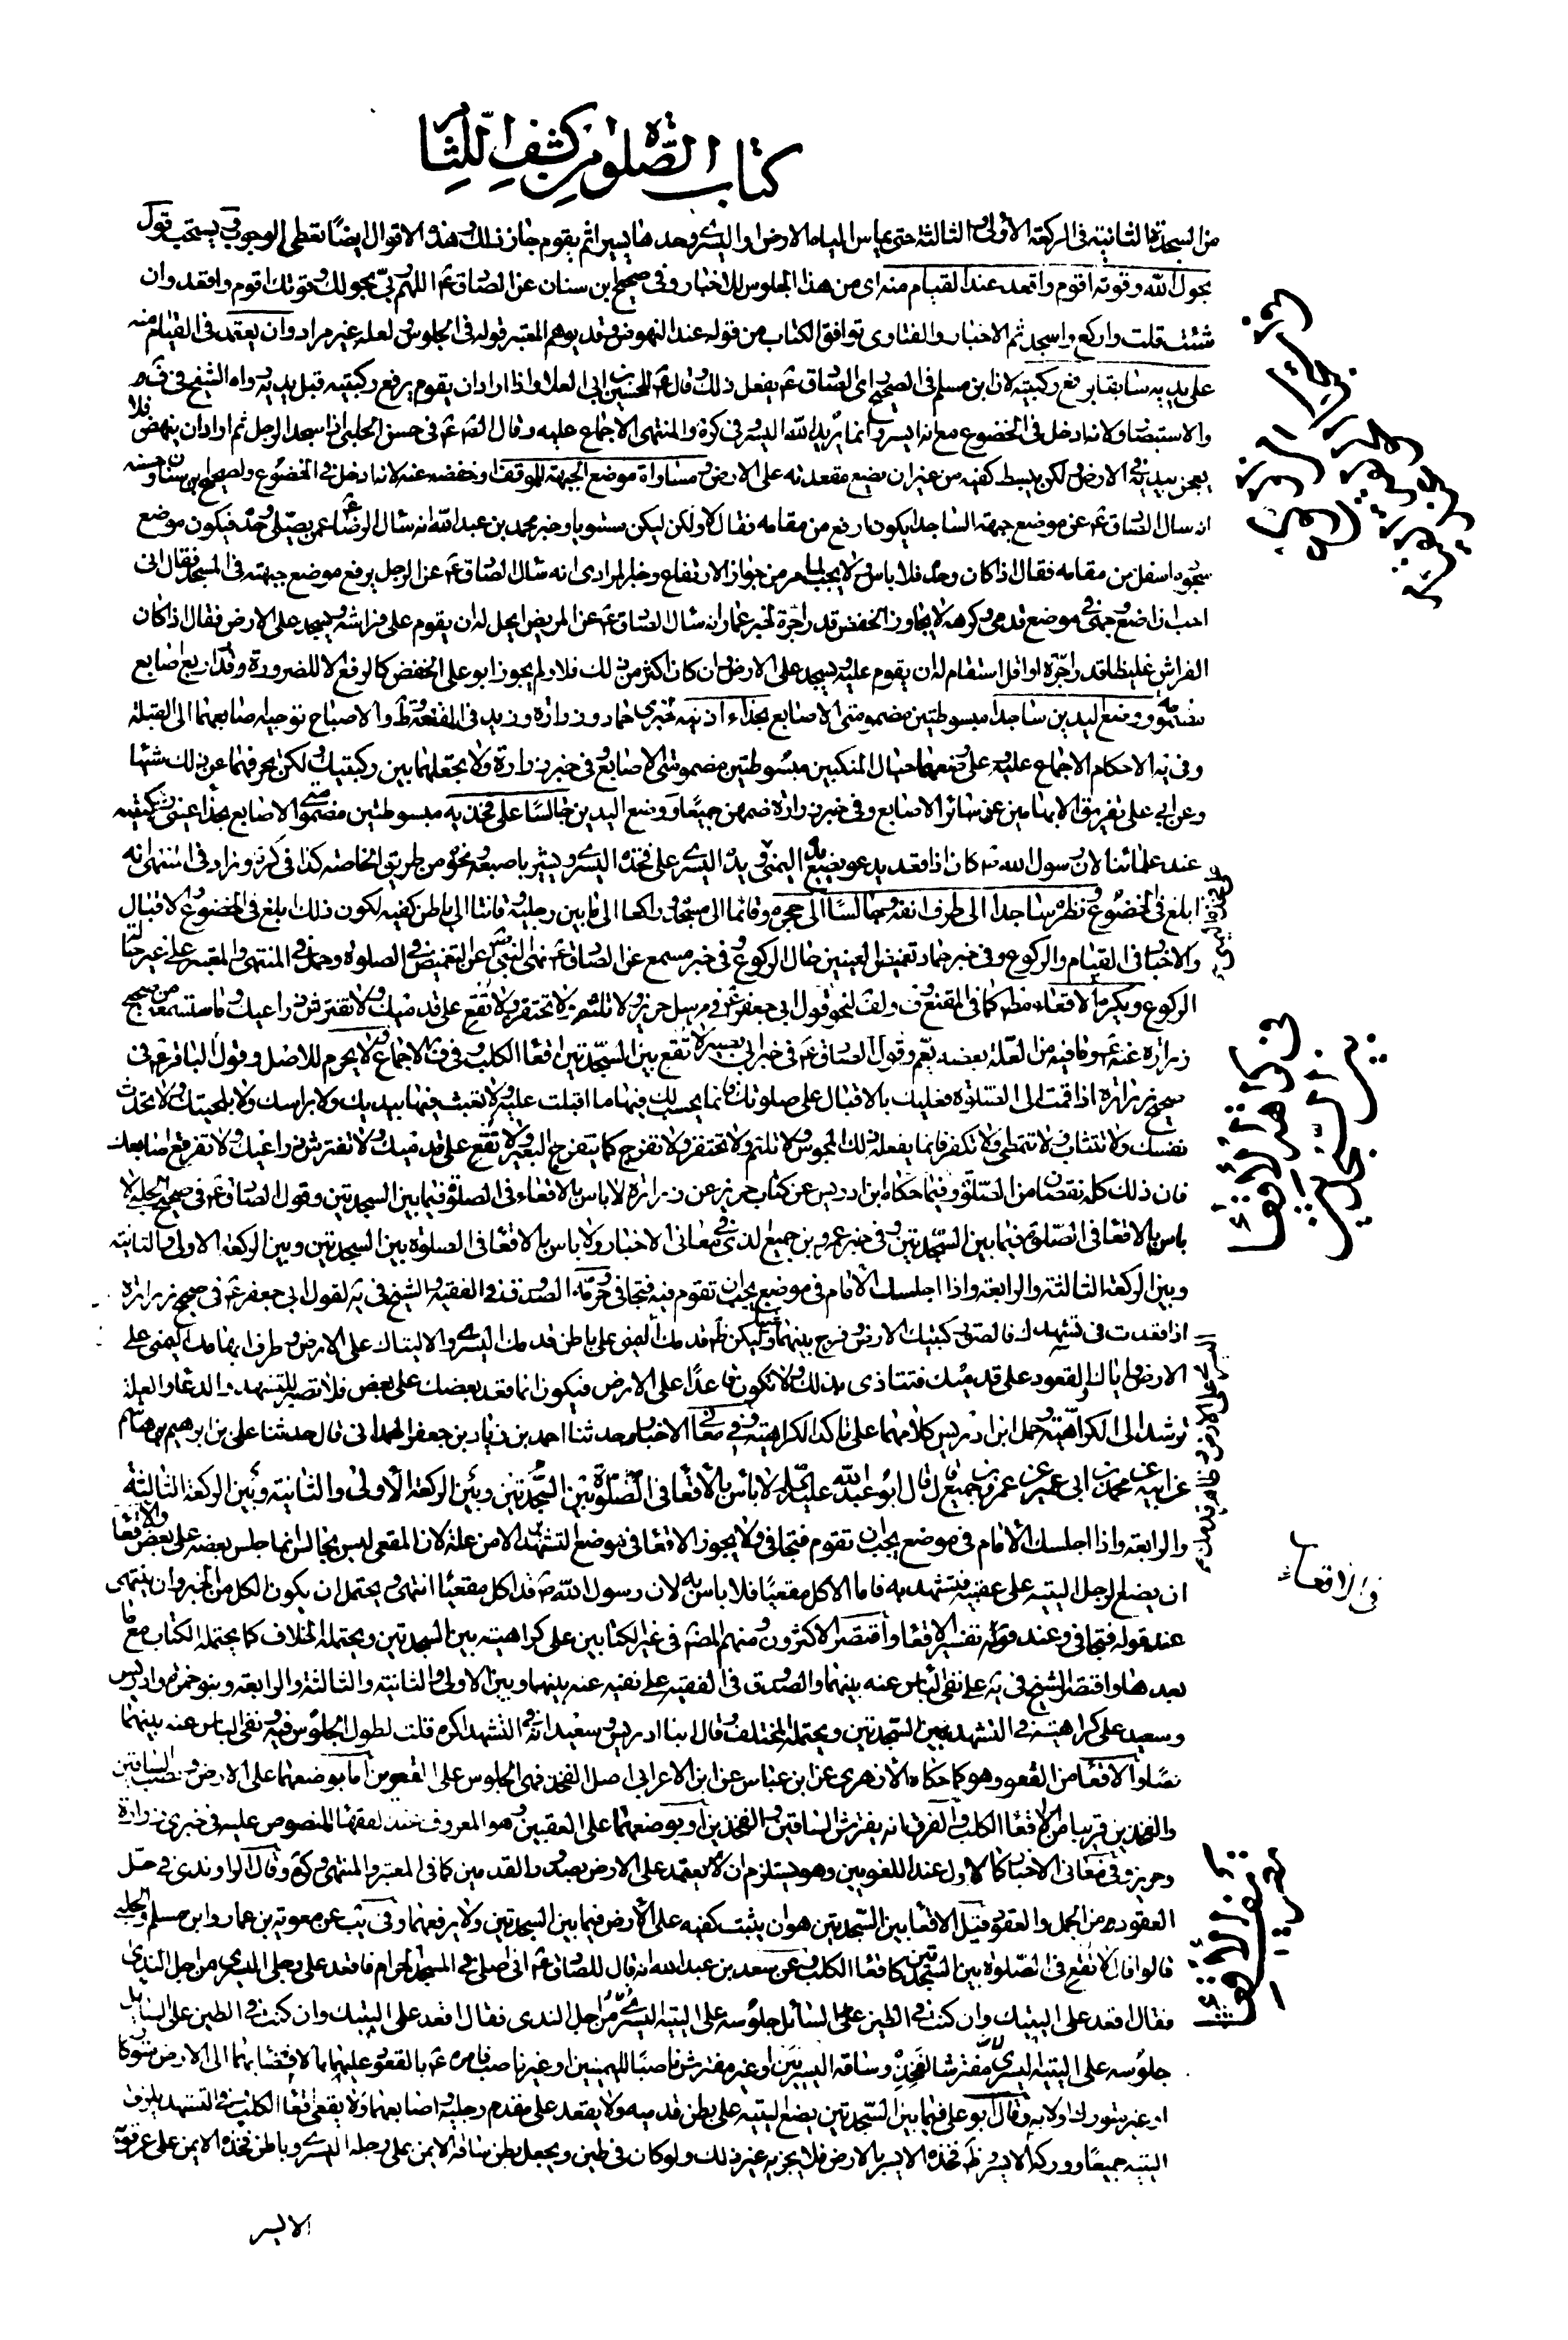 كتاب الصلوة من كشف اللثام
من السجدة الثانية فى الركعة الأولى والثالثة حتى يماس الارض او اليسرى وحدها يسيرا ثم يقوم جاز ذلك وهذه الاقوال ايضا تعطى الوجوب ويستحب قول
بحول الله وقوته اقوم واقعد عند القيام منه اى من هذا الجلوس للاخبار وفى صحيح ابن سنان عن الصادق ع اللهم ربى بحولك وقوتك اقوم واقعد وان
شئت قلت واركع واسجد ثم الاخبار والفتاوى توافق الكتاب من قوله عند النهوض وقد يوهم المعتبر قوله فى الجلوس ولعله غير مراد وان يعتمد فى القيام منه
على يديه سابقا برفع ركبتيه لان ابن مسلم فى الصحيح راى الصادق ع يفعل ذلك وقال ع للحسين بن ابى العلا واذا اراد ان يقوم يرفع ركبتيه قبل يديه رواه الشيخ فى
والاستبصار ولانه ادخل فى الخضوع مع انه ايسر وانما يريد الله اليسر فى كره والمنتهى الاجماع عليه وقال الصادق ع فى حسن الحلبى اذا سجد الرجل ثم اراد ان ينهض فلا
يعجن بيديه فى الارض لكن يبسط كفيه من غير ان يضع مقعدته على الارض ومساواة موضع الجبهة للموقف او خفضه عنه لانه ادخل فى الخضوع ولصحيح ابن سنان وحسنه
انه سال الصادق ع عن موضع جبهة الساجد ايكون ارفع من مقامه فقال لا ولكن ليكن مستويا وخبر محمد بن عبد الله انه سال الرضا ع عمن يصلى وحده فيكون موضع
سجوده اسفل من مقامه فقال اذا كان وحده فلا باس ولا يجب لما مر من جواز الارتفاع وخبر المرادى انه سال الصادق ع عن الرجل يرفع موضع جبهته فى المسجد فقال انى
احب ان اضع وجهى فى موضع قدمى وكرهه لا يجاوز الخفض قدر اجرة لخبر عمار انه سال الصادق ع عن المريض ايحل له ان يقوم على فراشه ويسجد على الارض فقال اذا كان
الفراش غليظا قدر اجرة او اقل استقام له ان يقوم عليه ويسجد على الارض وان كان اكثر من ذلك فلا ولم يجوز ابو على الخفض كالرفع الا للضرورة وقدر اربع اصابع
مضمومة ووضع اليدين ساجدا مبسوطتين مضمومتى الاصابع بحذاء اذنيه لخبرى حماد وزرارة وزيد فى المقنعة والاصباح توجيه اصابعهما الى القبلة
وفى نهاية الاحكام الاجماع عليه وعلى وضعهما حيال المنكبين مبسوطتين مضمومتى الاصابع وفى خبر زرارة ولا تجعلهما بين ركبتيك ولكن تحرفهما عن ذلك شيئا
وعن ابى على تفريق الابهامين عن سائر الاصابع وفى خبر زرارة ضمهن جميعا ووضع اليدين جالسا على فخذيه مبسوطتين مضمومتى الاصابع بحذاء عينى ركبتيه
عند علمائنا لان رسول الله ص كان اذا قعد يدعو يضع يده اليمنى ويده اليسرى على فخذه اليسرى ويشير باصبعه نحوه من طريق الخاصة كذا فى كره وزاد فى المنتهى انه
ابلغ فى الخضوع ونظره ساجدا الى طرف انفه وجالسا الى حجره وقائما الى مسجده وراكعا الى ما بين رجليه وقانتا الى باطن كفيه لكون ذلك ابلغ فى الخضوع والاقبال
والاخبار فى القيام والركوع وفى خبر حماد تغميض العينين حال الركوع وفى خبر مسمع عن الصادق ع نهى النبى ص عن التغميض فى الصلوة وحمل فى المنتهى والمعتبر على غير حالة
الركوع ويكره الاقعاء مطلقا كما فى المقنع وف ولف لنحو قول ابى جعفر ع فى مرسل حريز ولا تلثم ولا تحتفز ولا تقع على قدميك ولا تفترش ذراعيك وما ستسمعه من صحيح
زرارة عنه ع وما فيه من العلة بعضه يعم وقول الصادق ع فى خبر ابى بصير لا تقع بين السجدتين اقعاء الكلب وفى ف الاجماع ولا يحرم للاصل وقول الباقر ع فى
صحيح زرارة اذا قمت الى الصلوة فعليك بالاقبال على صلوتك فانما يحسب لك فيها ما اقبلت عليه ولا تعبث فيها بيديك ولا براسك ولا بلحيتك ولا تحدث
نفسك ولا تتثاب ولا تتمطى ولا تكفر فانما يفعل ذلك المجوس ولا تلثم ولا تحتفز ولا تفرج كما يتفرج البعير ولا تقع على قدميك ولا تفترش ذراعيك ولا تفرقع اصابعك
فان ذلك كله نقصان من الصلوة وفيما حكاه ابن ادريس عن كتاب حريز عن زرارة لا باس بالاقعاء فى الصلوة فيما بين السجدتين وقول الصادق ع فى صحيح الحلبى لا
باس بالاقعاء فى الصلوة فيما بين السجدتين وفى خبر عمرو بن جميع الذى فى معانى الاخبار ولا باس بالاقعاء فى الصلوة بين السجدتين وبين الركعة الاولى والثانية
وبين الركعة الثالثة والرابعة واذا اجلسك الامام فى موضع يجب ان تقوم فيه فتجافى وحرمه الصدوق فى الفقيه والشيخ فى يه لقول ابى جعفر ع فى صحيح زرارة
اذا قعدت فى تشهدك فالصق ركبتيك الارض وفرج بينهما شيئا وليكن ظهر قدمك اليسرى على الارض وظاهر قدمك اليمنى على باطن قدمك اليسرى واليتاك على الارض وطرف ابهامك اليمنى على
الارض واياك والقعود على قدميك فتتاذى بذلك ولا تكون قاعدا على الارض فيكون انما قعد بعضك على بعض فلا تصبر للتشهد والدعاء والعلة
ترشد الى الكراهية وحمل ابن ادريس كلامهما على تاكد الكراهية وفى معانى الاخبار حدثنا احمد بن زياد بن جعفر الهمدانى قال حدثنا على بن ابرهيم بن هاشم
عن ابيه عن محمد بن ابى عمير عن عمرو بن جميع قال قال ابو عبد الله عليه السلام لا باس بالاقعاء فى الصلوة بين السجدتين وبين الركعة الاولى والثانية وبين الركعة الثالثة
والرابعة واذا اجلسك الامام فى موضع يجب ان تقوم فتجافى ولا يجوز الاقعاء فى موضع التشهدين الا من علة لان المقعى ليس بجالس انما جلس بعضه على بعض والاقعاء
ان يضع الرجل اليتيه على عقبيه فى تشهديه فاما الاكل مقعيا فلا باس به لان رسول الله ص قد اكل مقعيا انتهى ويحتمل ان يكون الكل من الخبر وان ينتهى
عند قوله فتجافى وعند قوله تفسير الاقعاء واقتصر الاكثرون ومنهم المصنف فى غير الكتابين على كراهيته بين السجدتين ويحتمله الخلاف كما يحتمله الكتاب مع ما
بعدها واقتصر الشيخ فى يه على نفى الباس عنه بينهما والصدوق فى الفقيه على نفيه عنه بينهما وبين الاولى والثانية والثالثة والرابعة وبنو حمزة وادريس
وسعيد على كراهيته فى التشهد وبين السجدتين ويحتمله المختلف وقال ابنا ادريس وسعيد انه فى التشهد اكره قلت لطول الجلوس فيه ونفى الباس عنه بينهما
نصا والاقعاء من القعو وهو كما حكاه الازهرى عن ابن عباس عن ابن الاعرابى اصل الفخذ فهى الجلوس على القعوين اما بوضعهما على الارض ونصب الساقين
والفخذين قريبا من اقعاء الكلب والفرق انه يفترش الساقين والفخذين او بوضعهما على العقبين وهو المعروف عند الفقهاء المنصوص عليه فى خبرى زرارة
وحريز وفى معانى الاخبار كما الاول عند اللغويين وهو يستلزم ان يعتمد على الارض بصدور القدمين كما فى المعتبر والمنتهى وكره وقال الراوندى فى حل
العقود من الجمل والعقود قيل الاقعاء بين السجدتين هو ان يثبت كفيه على الارض فيما بين السجدتين ولا يرفعهما وفى يب عن معوية بن عمار وابن مسلم والحلبى
قالوا قال لا تقع فى الصلوة بين السجدتين كاقعاء الكلب وعن سعد بن عبد الله انه قال للصادق ع انى اصلى فى المسجد الحرام فاقعد على رجلى اليسرى من اجل الندى
فقال اقعد على اليتيك وان كنت فى الطين على السائل جلوسه على اليتيه اليسرى من اجل الندى فقال اقعد على اليتيك وان كنت فى الطين على السائل
جلوسه على اليتيه اليسرى مفترشا لفخذه وساقه اليسريين او غير مفترش ناصبا لليمنيين او غير ناصب فامره ع بالقعود عليهما بالافضاء بهما الى الارض متوركا
او غير متورك اولا به وقال ابو على فيما بين السجدتين يضع اليتيه على بطن قدميه ولا يقعد على مقدم رجليه واصابعهما ولا يقعى اقعاء الكلب وفى التشهد يلزق
اليتيه جميعا وورك الايسر وظاهر فخذه الايسر بالارض فلا يجزيه غير ذلك ولو كان فى طين ويجعل بطن ساقه الايمن على رجله اليسرى وباطن فخذه الايمن على عرقوبه
الايسر
فى كراهة الاقعاء
بين السجدتين
فى الاقعاء
تفسير الاقعاء